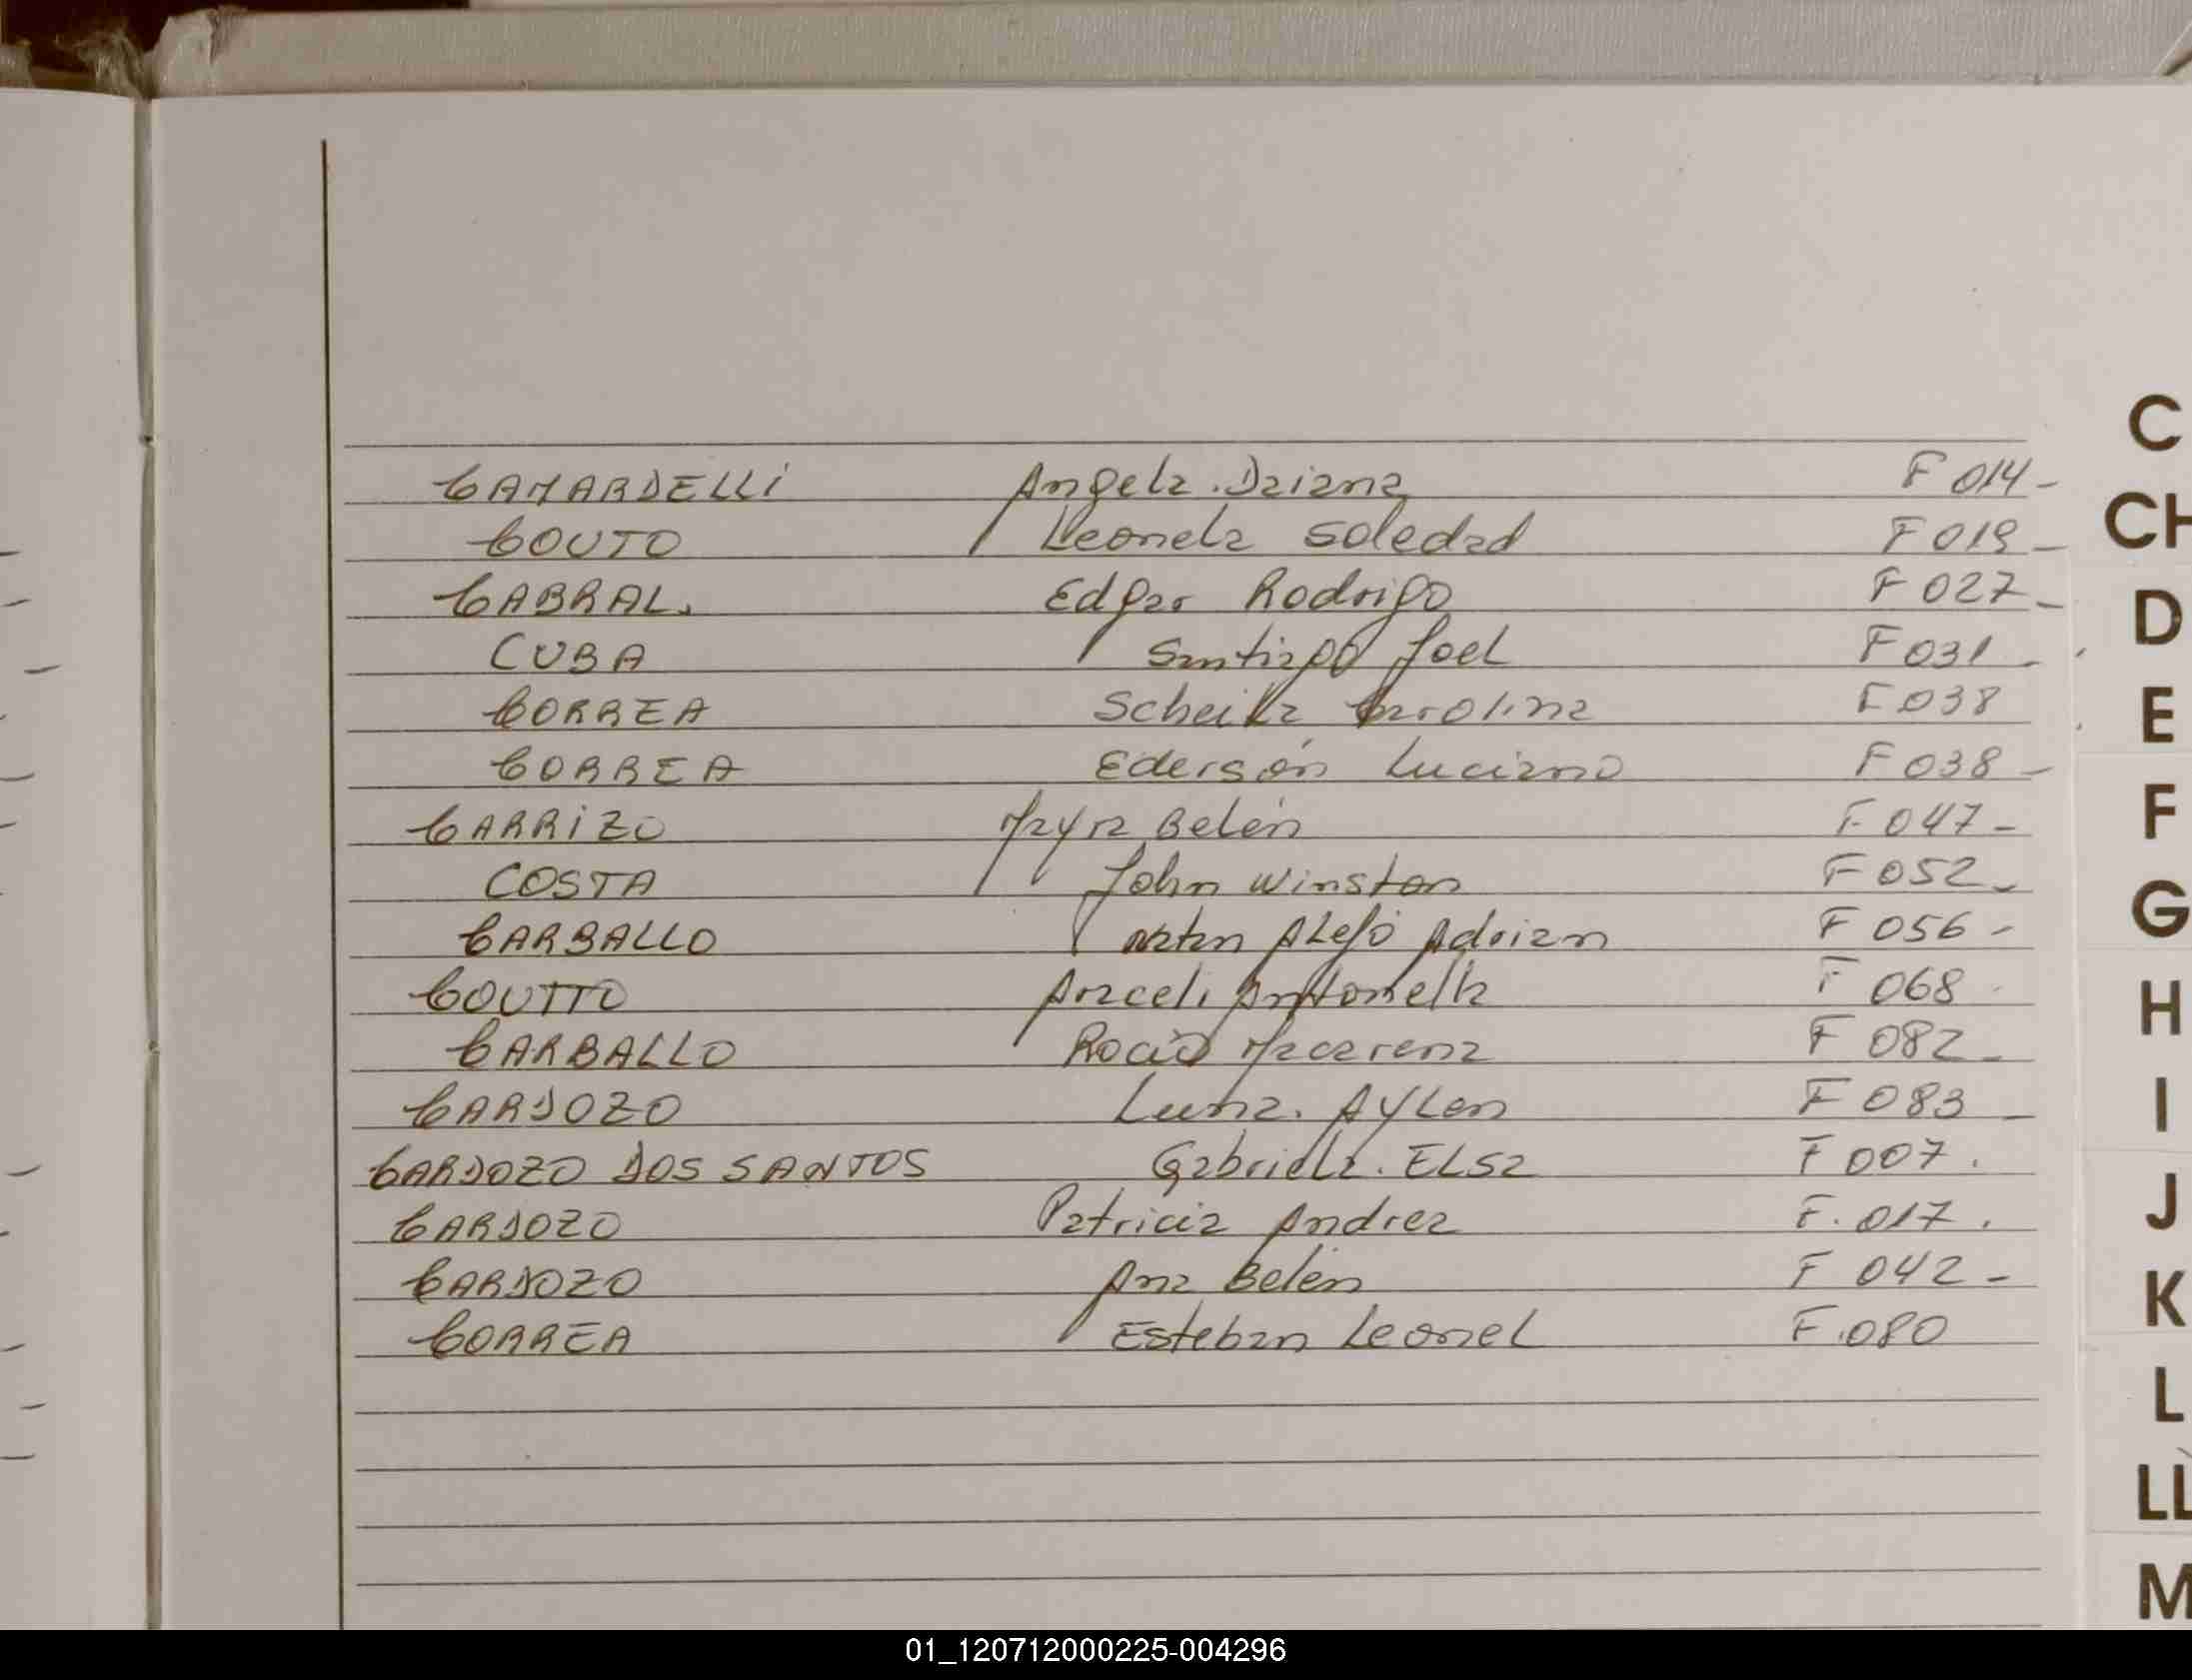 CAMARDELLI Angela. Daiana F 014-
COUTO Leonela Soledad F 019-
CABRAL. Edgar Rodrigo F 027-
CUBA Santiago Joel F 031-
CORREA Scheila Carolina F 038
CORREA Ederson Luciano F 038-
CARRIZO Mayra Belén F.047-
COSTA John Winston F 052-
CARBALLO Natan Alejo Adrian F 056-
COUTTO Araceli Antonella F 068
CARBALLO Rocio Macarena F 082-
CARDOZO Luna. Aylen F 083-
CARDOZO DOS SANTOS Gabriela. Elsa F 007.
CARDOZO Patricia Andrea F. 017.
CARDOZO Ana Belén F 042-
CORREA Esteban Leonel F.080
C
CH
D
E
F
G
H
I
J
K
L
LL
M
01_120712000225-004296